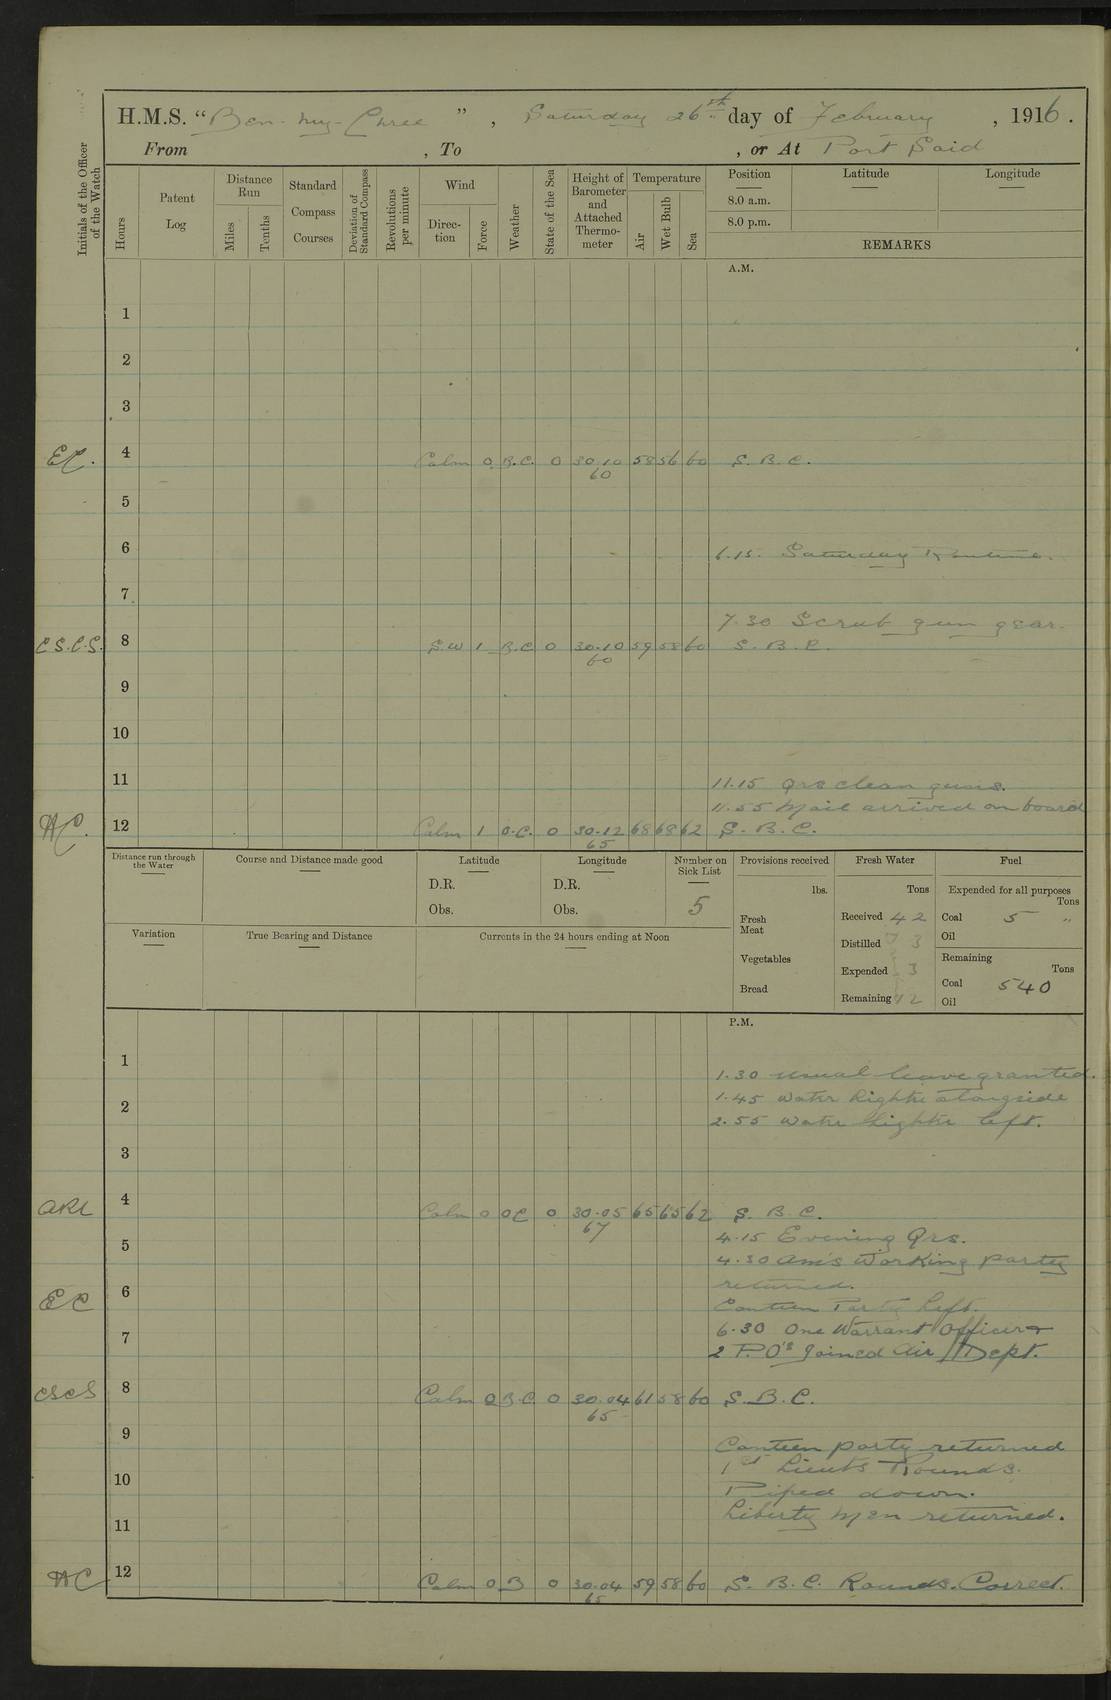 H.M.S. "Ben-my-Chree", Saturday 26th day of February, 1916.
From , To , or At Port Said
Initials of the Officer of the Watch
Hours
Patent Log
Distance Run
Miles
Tenths
Standard Compass Courses
Deviation of Standard Compass
Revolutions per minute
Wind
Direction
Force
Weather
State of the Sea
Height of Barometer and Attached Thermometer
Temperature
Air
Wet Bulb
Sea
Position
8.0 a.m.
8.0 p.m.
Latitude
Longitude
REMARKS
A.M.
1
2
3
EC. 4 Calm 0 B.C. 0 30.10 58 56 60 S. B. C.
60
5
6 6.15. Saturday Routine.
7
7.30 Scrub gun gear.
C.S.C.S. 8 S.W 1 B.C 0 30.10 59 58 60 S. B. C.
60
9
10
11 11.15 Qrs clean guns.
11.55 Mail arrived on board
12 Calm 1 O.C. 0 30.12 68 68 62 S. B. C.
65
Distance run through the Water
Course and Distance made good
Latitude
D.R.
Obs.
Longitude
D.R.
Obs.
Number on Sick List
5
Provisions received
lbs.
Fresh Meat
Vegetables
Bread
Fresh Water
Tons
Received 42
Distilled 3
Expended 3
Remaining
Fuel
Expended for all purposes
Tons
Coal 5 "
Oil
Remaining
Tons
Coal 540
Oil
Variation
True Bearing and Distance
Currents in the 24 hours ending at Noon
P.M.
1
1.30 usual leave granted.
2 1.45 Water Lighter alongside
2.55 Water Lighter left.
3
4 Calm 0 OC 0 30.05 65 65 62 S. B. C.
67
4.15 Evening Qrs.
5
4.30 Working party
returned.
EC 6 Canteen Party Left.
6.30 One Warrant Officer &
7 2 P.O's Joined Air Dept.
CSCS 8 Calm 0 B.C. 0 30.04 61 58 60 S. B. C.
65
9 Canteen party returned
1st Lieuts Rounds.
10 Piped down.
Liberty Men returned.
11
12 Calm 0 B 0 30.04 59 58 60 S. B. C. Rounds. Correct.
65